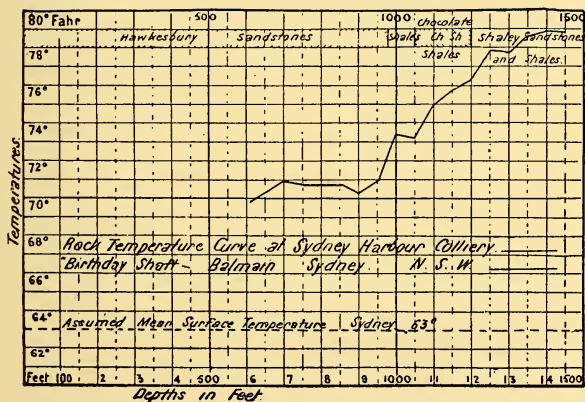 80° Fahr 500 1000 1500
Chocolate
Hawkesbury Sandstones Shales Ch Sh Shaley Sandstones
Shales and Shales
78°
76°
74°
72°
70°
68°
66°
64°
62°
Temperatures.
Rock Temperature Curve at Sydney Harbour Colliery
"Birthday Shaft" - Balmain Sydney. N. S. W.
Assumed Mean Surface Temperature Sydney 63°
Feet 100 2 3 4 500 6 7 8 9 1000 11 12 13 14 1500
Depths in Feet.